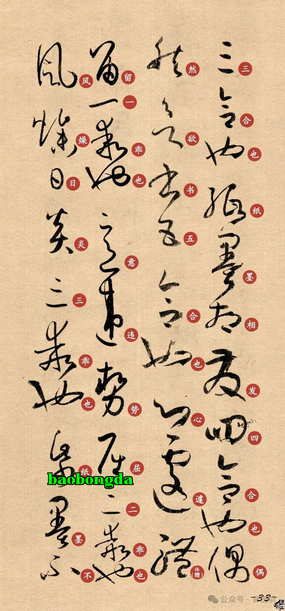 三合也纸墨相发四合也偶
然欲书五合也心遽體
留一乖也意违势屈二乖也
风燥日炎三乖也纸墨不
baobongda
公众号
33